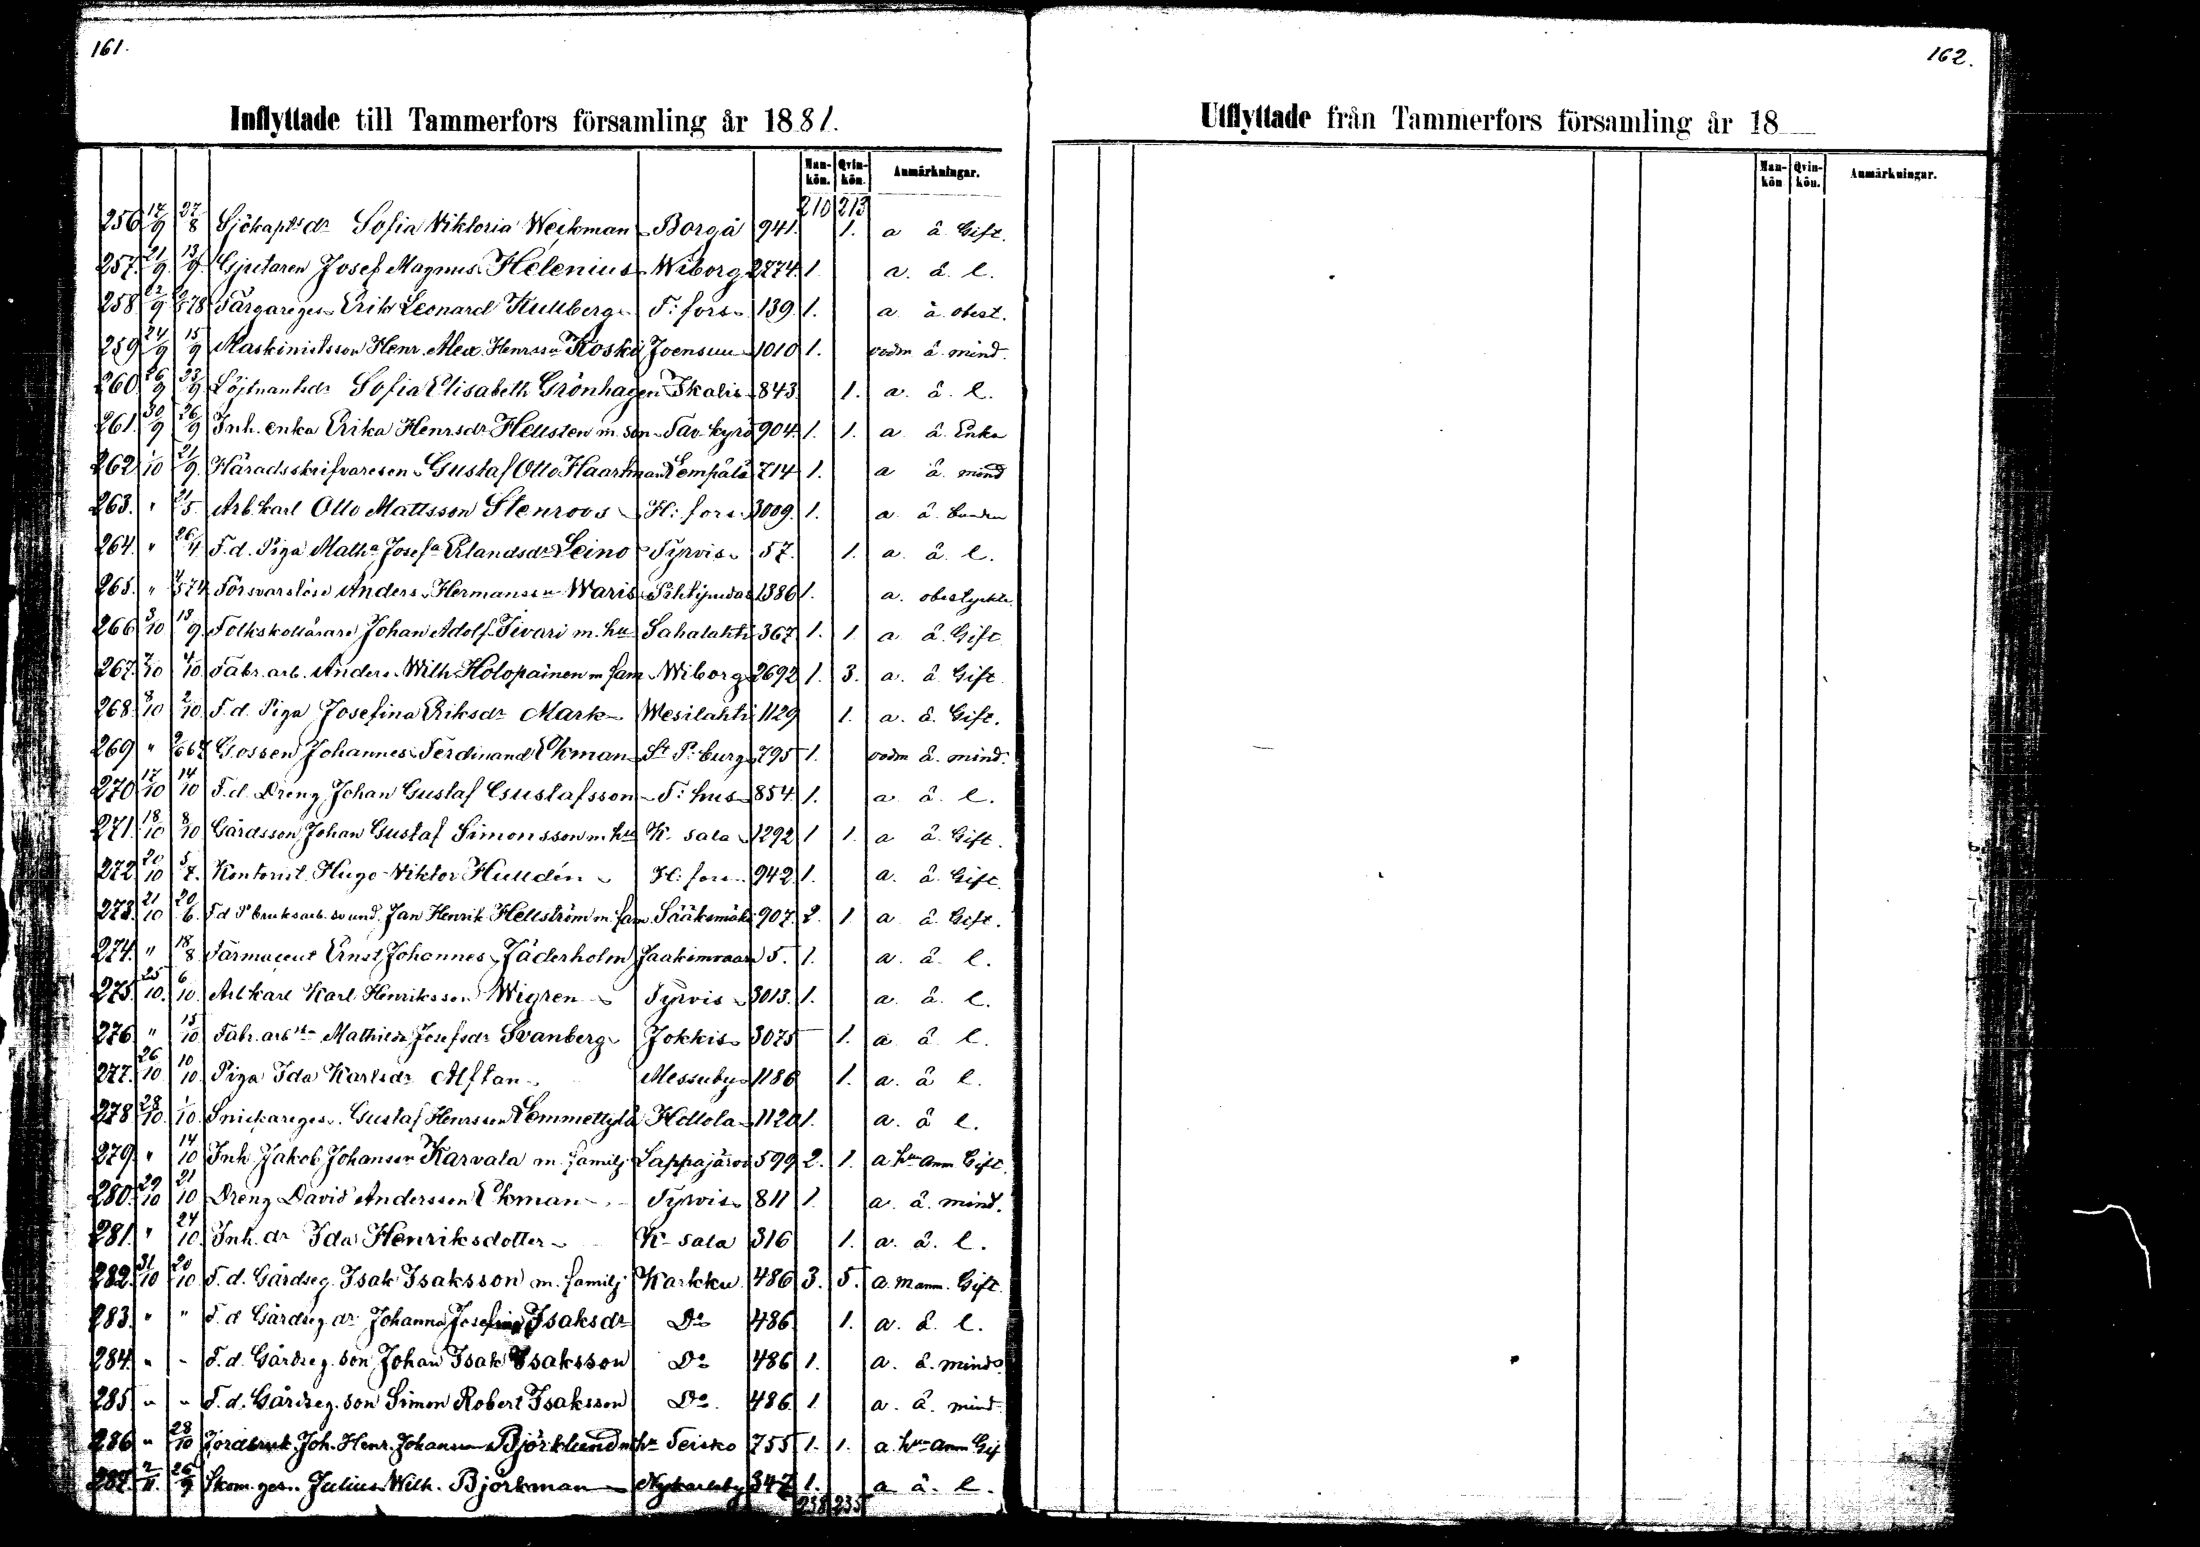 161.
Inflyttade till Tammerfors församling år 1881.
Man-kön. Qvin-kön. Anmärkningar.
210 213
256 17/9 27/8 Sjökapts dr Sofia Viktoria Weckman Borgå 941. 1. a å Gift.
257. 21/9 13/9 Gjutaren Josef Magnus Helenius Wiborg 2774. 1 a. å. l.
258. 22/9 Färgareges. Erik Leonard Kullberg T:fors 139. 1. a å obest.
259 24/9 15/9 Maskinistsson Henr. Alex. Henrsson Koski Joensuu 1010 1. vodm å mind.
260. 26/9 23/9 Löjtnantsdr Sofia Elisabeth Grönhagen Ikalis 843. 1. a. å. l.
261. 30/9 26/9 Inh. enka Erika Henrsdr Hellsten m. son Tav-kyrö 904. 1. 1. a å Enka
262 1/10 21/9. Häradsskrifvaresen Gustaf Otto Haartman Lempälä 714 1. a å mind
263. " 21/5. Arb.karl Otto Mattsson Stenroos H:fors 3009. 1. a å
264. " 26/4 F.d. Piga Matha Josefa Erlandsdr Leino Tyrvis 57. 1. a. å. l.
265. " Försvarslöse Anders Hermansson Waris Pihtipudas 1386 1. a. obestyrkt.
266 3/10 13/9. Folkskollärare Johan Adolf Iivari m. hu Sahalahti 367 1. 1. a å. Gift
267. 7/10 4/10. Fabr. arb. Anders Wilh. Holopainen m fam Wiborg 2692 1. 3. a. å Gift
268. 8/10 2/10. F.d. Piga Josefina Eriksdr Mark Wesilahti 1129 1. a. å. Gift.
269 " Gossen Johannes Ferdinand Ekman St P:burg 795 1. vodm å. mind.
270 17/10 14/10 F.d. Dreng Johan Gustaf Gustafsson T:hus 854. 1. a å. l.
271. 18/10 8/10 Gårdsson Johan Gustaf Simonsson m. hu K-sala 1292 1 1. a å. Gift.
272. 20/10 5/7. Kontorist Hugo Viktor Hulldén H:fors 942. 1. a. å. Gift.
273. 21/10 20/6. Jan Henrik Hellström m. fam Sääksmäki 907. 2. 1. a å. Gift.
274. " 18/8 Farmaceut Ernst Johannes Jäderholm Jaakimvaara 5. 1. a. å. l.
275. 25/10. 6/10. Arb.karl Karl Henriksson Wigren Tyrvis 3013. 1. a. å. l.
276 " 15/10 Fabr. arb. Mathilda Josefsdr Svanberg Jokkis 3075 1. a å l.
277. 26/10 10/10. Piga Ida Karlsdr Alftan Messuby 1186 1. a. å l.
278 28/10. 1/10. Snickareges. Gustaf Henrsson Lemmettylä Hollola 1120 1. a. å l.
279 " 14/10 Inh. Jakob Johansson Karvala m. familj Lappajärvi 599 2. 1. a hun anm Gift.
280. 29/10 21/10 Dreng David Andersson Ekman Tyrvis 811 1. a. å. mind.
281. " 24/10. Inh. dr Ida Henriksdotter K-sala 316 1. a. å. l.
282. 31/10 20/10 F.d. Gårdseg. Isak Isaksson m. familj Karkku 486 3. 5. a. m anm. Gift.
283. " " F.d Gårdseg. dr Johanna Josefina Isaksdr Do 486. 1. a. å. l.
284. " " F.d. Gårdseg. son Johan Isak Isaksson Do 486 1. a. å. mind.
285 " " F.d. Gårdseg. son Simon Robert Isaksson Do. 486. 1 a. å. mind.
286 " 28/10 Jordbruk. Joh. Henr. Johansson Björklund m hu Teisko 755 1. 1. a. hun anm Gif
287. 2/11. 26/9 Skom. ges. Julius Wilh. Björkman Nykarleby 347 1. a å. l.
238 235
162.
Utflyttade från Tammerfors församling år 18
Man-kön Qvin-kön. Anmärkningar.